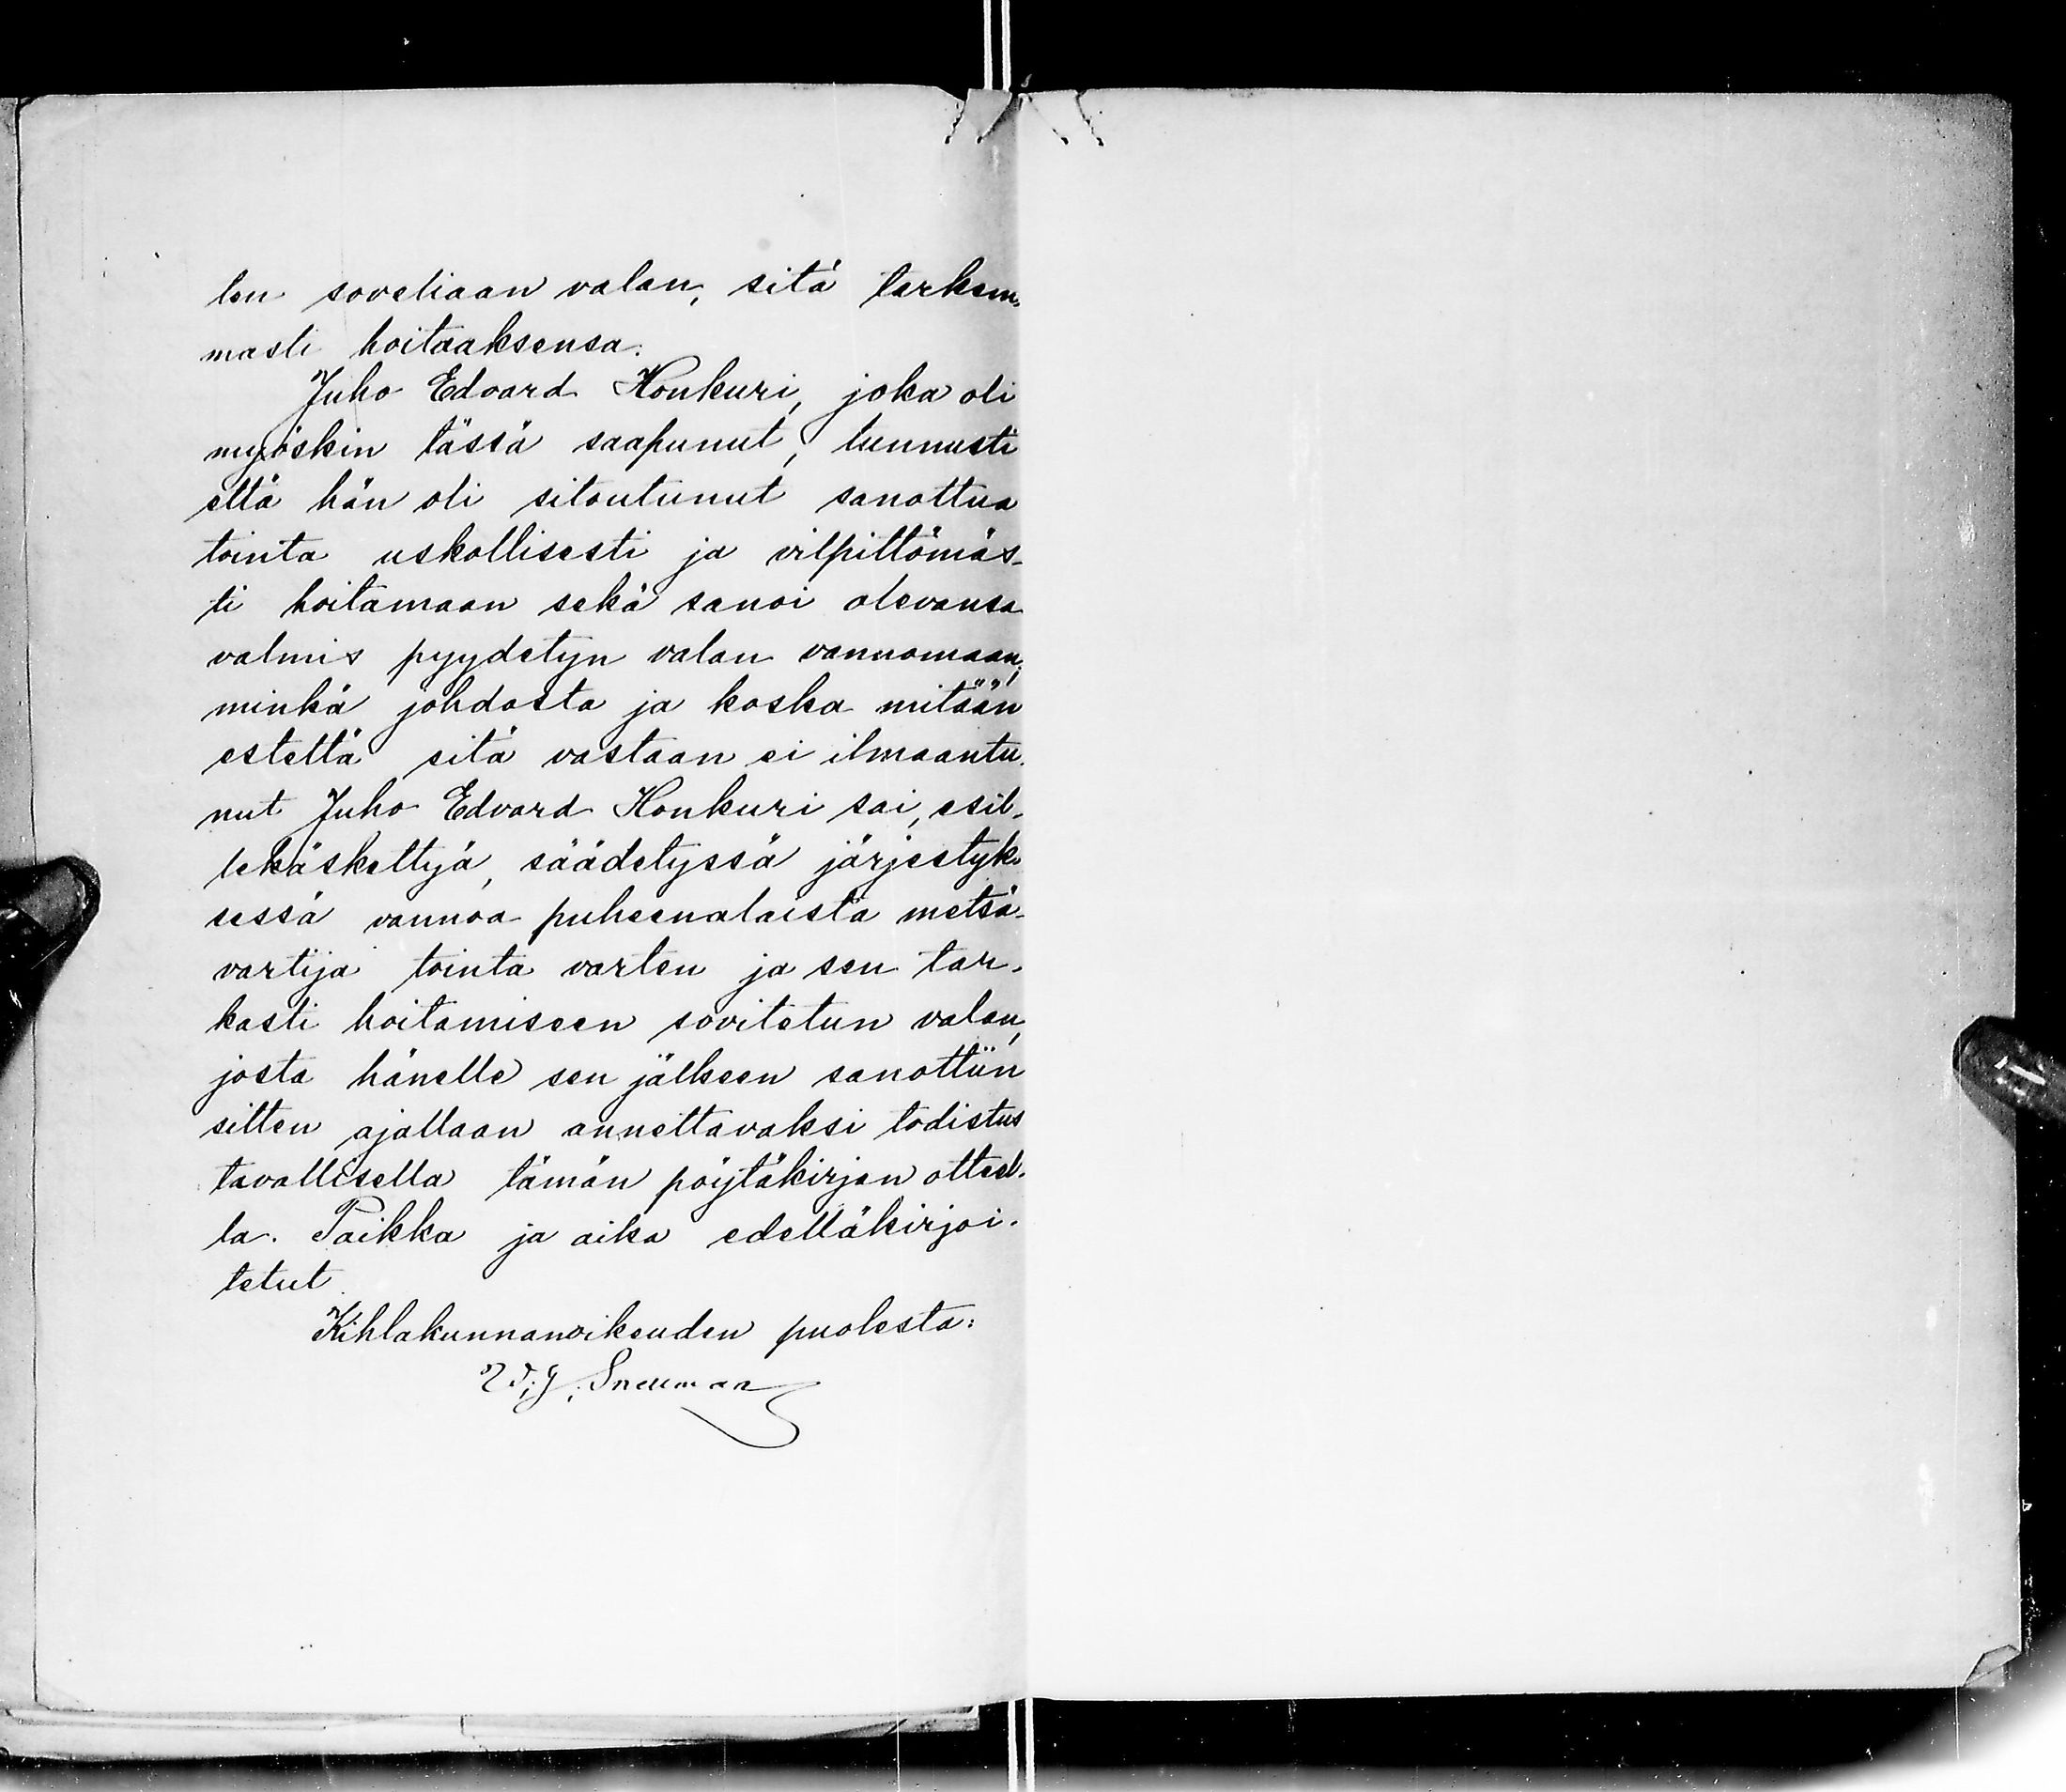 ten soveliaan valan, sitä tarkem-
masti hoitaaksensa.
Juho Edvard Honkuri, joka oli
myöskin tässä saapunut, tunnusti
että hän oli sitoutunut sanottua
tointa uskollisesti ja vilpittömäs-
ti hoitamaan sekä sanoi olevansa
valmis pyydetyn valan vannomaan;
minkä johdosta ja koska mitään
estettä sitä vastaan ei ilmaantu-
nut Juho Edvard Honkuri sai, esil-
lekäskettyä, säädetyssä järjestyk-
sessä vannoa puheenalaista metsä-
vartija tointa varten ja sen tar-
kasti hoitamiseen sovitetun valan,
josta hänelle sen jälkeen sanottiin
sitten ajallaan annettavaksi todistus
tavallisella tämän pöytäkirjan otteel-
la. Paikka ja aika edelläkirjoi-
tetut.
Kihlakunnanoikeuden puolesta:
Snellman